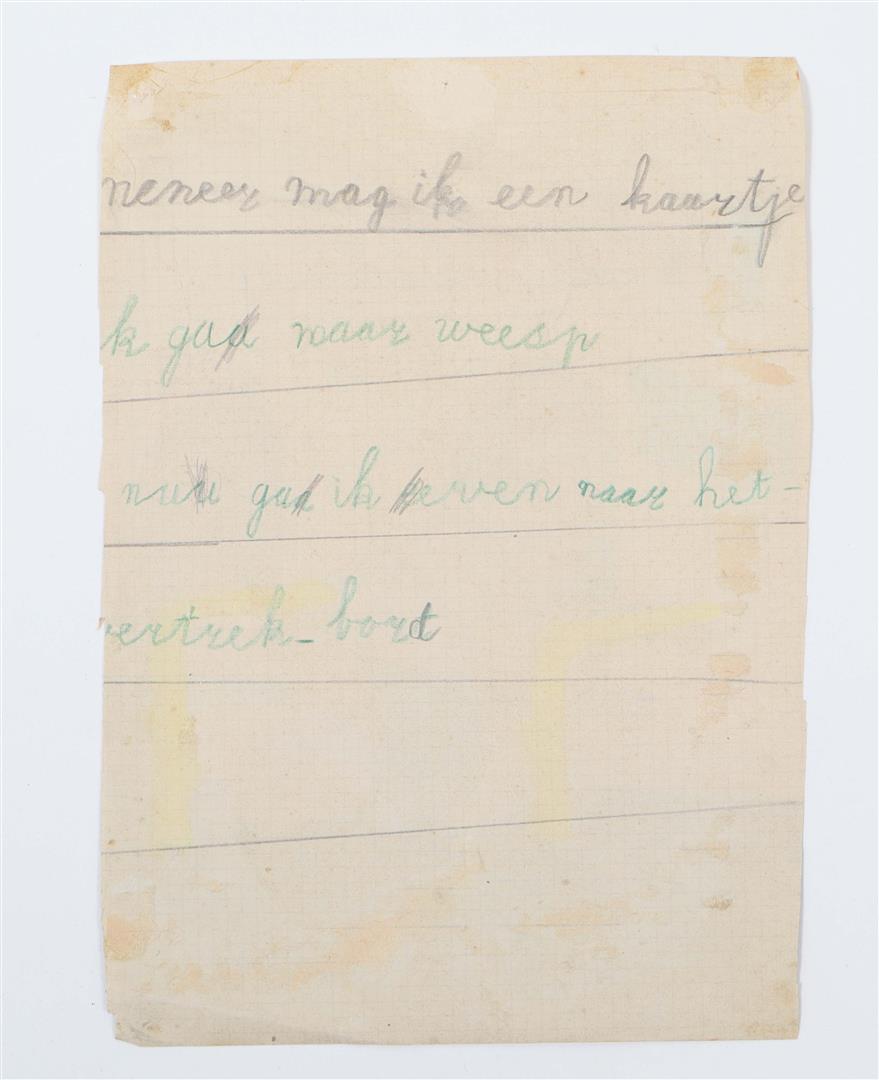 neneer mag ik een kaartje
k ga naar weesp
nu ga ik even naar het-
vertrek-bord